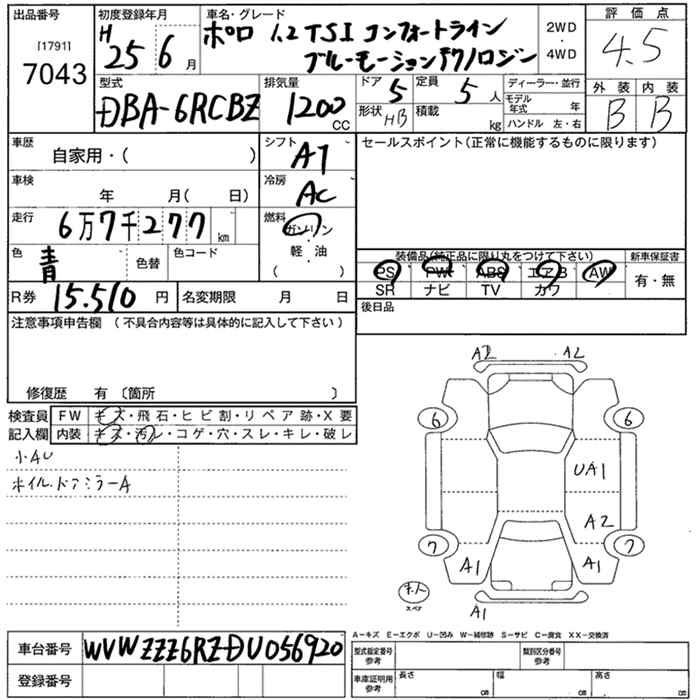 出品番号 初度登録年月 車名・グレード 評価点
[1791]
7043
H 25 6 月
ポロ 1.2 TSI コンフォートライン
ブルーモーションテクノロジー
2WD
・
4WD
4.5
型式 排気量 ドア 5 定員 5 人 ディーラー・並行
DBA-6RCBZ 1200 CC
形状 HB 積載 kg モデル年式 年
ハンドル 左・右
外装 内装
B B
車歴 自家用・( ) シフト AT
セールスポイント(正常に機能するものに限ります)
車検 年 月( 日) 冷房 AC
走行 6万7千277 km 燃料 ガソリン
・
軽油
( )
色 青 色替 色コード
装備品(純正品に限り丸をつけて下さい) 新車保証書
PS PW ABS エアB AW
SR ナビ TV カワ
有・無
R券 15.510 円 名変期限 月 日
後日品
注意事項申告欄 (不具合内容等は具体的に記入して下さい)
修復歴 有 〔箇所 〕
検査員 FW キズ・飛石・ヒビ割・リペア跡・X要
記入欄 内装 キズ・汚レ・コゲ・穴・スレ・キレ・破レ
小AU
ホイル.ドアミラーA
A2 A2
6 6
UA1
A2
7 7
A1 A1
スペア
A1
A-キズ E-エクボ U-凹み W-補修跡 S-サビ C-腐食 XX-交換済
車台番号 WVWZZZ6RZDU056920
型式指定番号 参考 類別区分番号 参考
登録番号
車庫証明用 参考 長さ cm 幅 cm 高さ cm